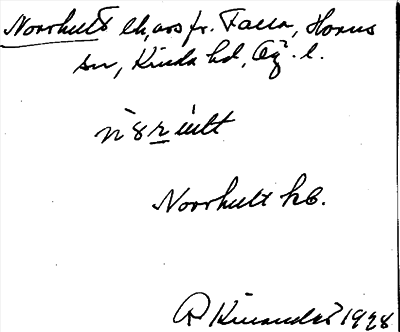 Norrhult lh, avs fr. Falla, Horns
sn, Kinda hd, Ög. l.
Norrhult hb.
R Kinander 1928